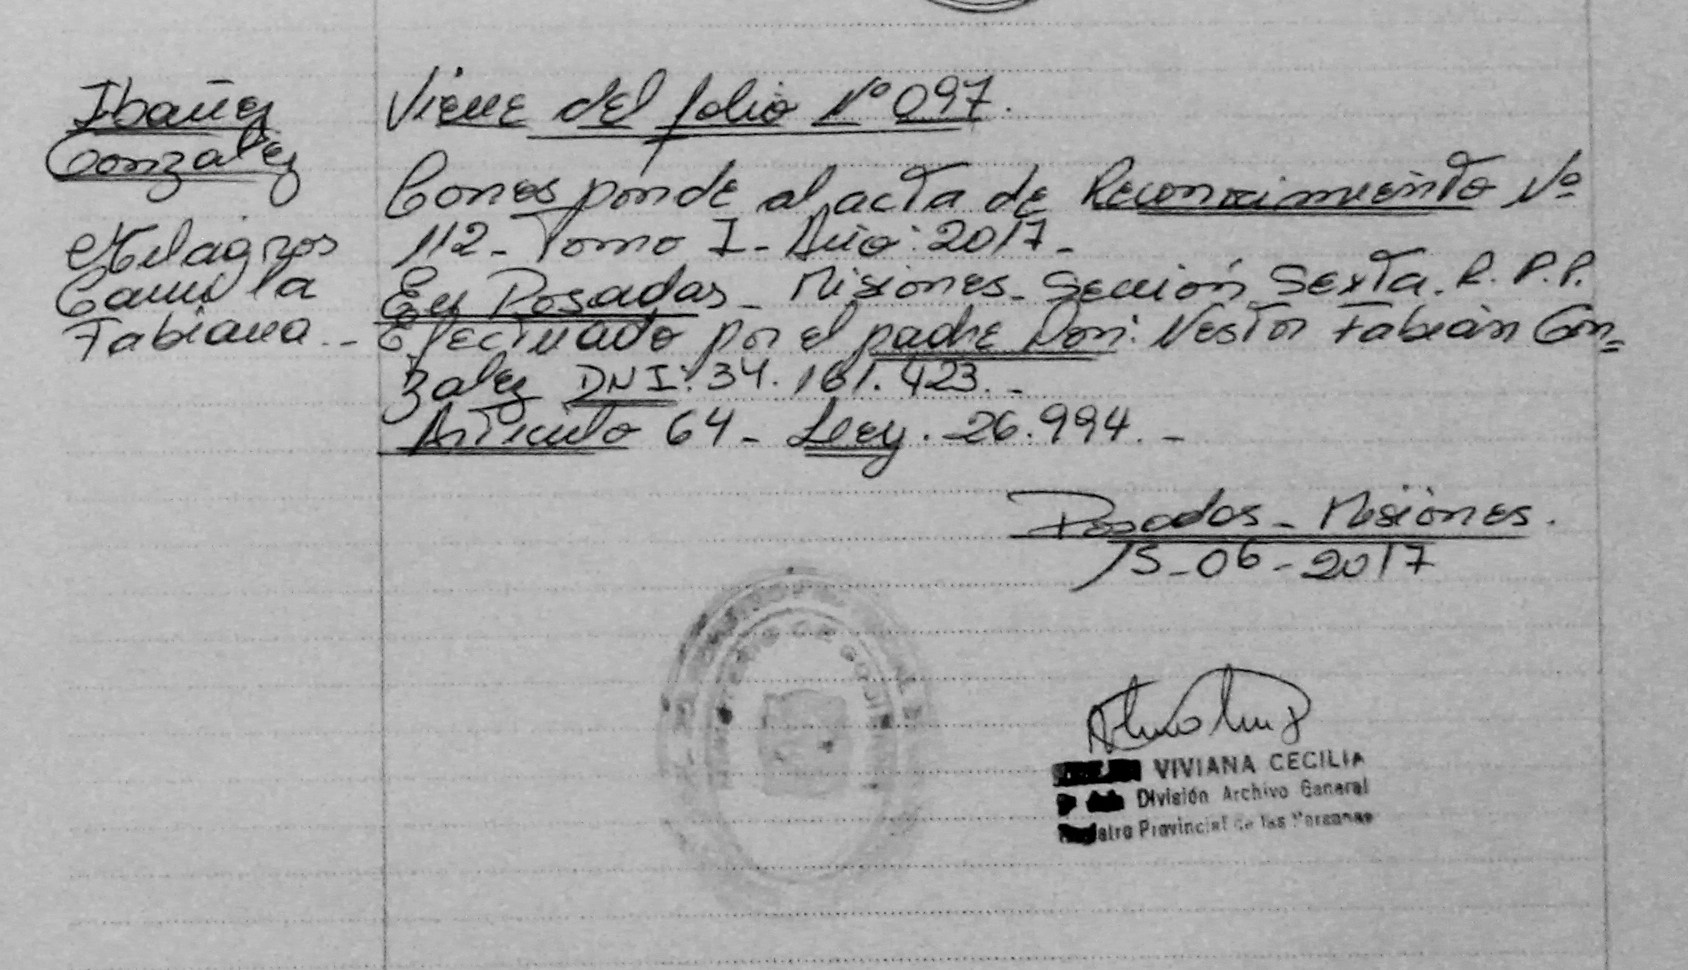 Ibañez
Gonzalez
Milagros
Camila
Fabiana.-
Viene del folio Nº 097.
Corresponde al acta de Reconocimiento Nº
112- Tomo I- Año: 2017-
En Posadas- Misiones- Sección Sexta. R. P. P.
Efectuado por el padre Don: Nestor Fabián Gon=
zalez DNI: 34.161.423.-
Artículo 64- Ley. 26.994.-
Posadas- Misiones.
15-06-2017
MINISTERIO DE GOBIERNO
VIVIANA CECILIA
División Archivo General
Provincial de las Personas